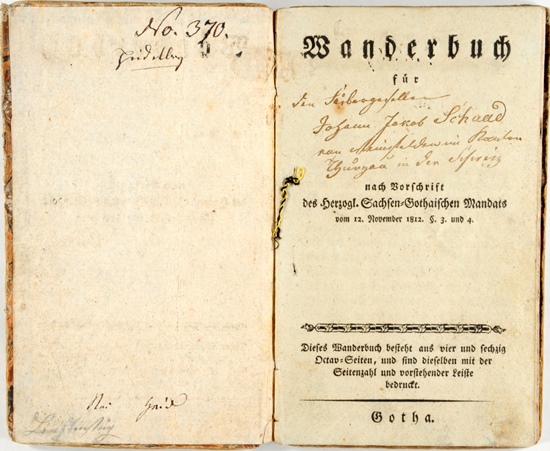 No. 370.
Wanderbuch
für
den Färbergesellen
Johann Jakob Schaad
von im Kanton
Thurgau in der Schweiz
nach Vorschrift
des Herzogl. Sachsen-Gothaischen Mandats
vom 12. November 1812. §. 3. und 4.
Dieses Wanderbuch besteht aus vier und sechzig
Octav-Seiten, und sind dieselben mit der
Seitenzahl und vorstehender Leiste
bedruckt.
Gotha.